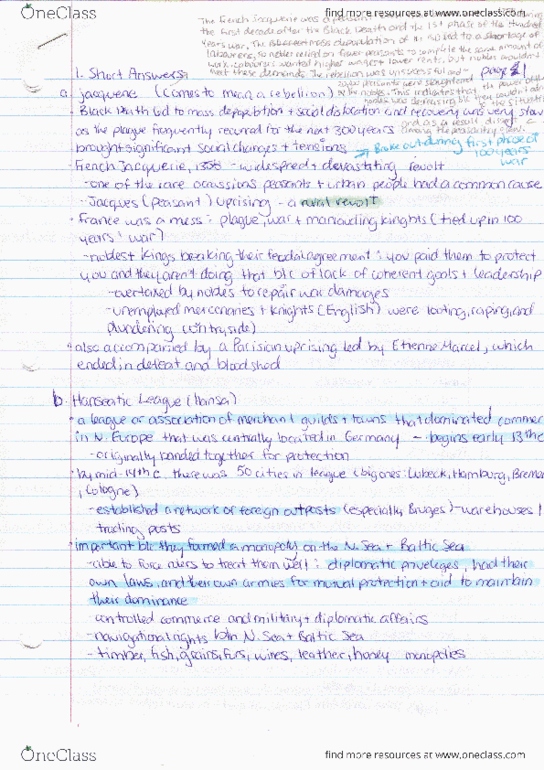 OneClass
find more resources at oneclass.com
The French Jacquerie was a peasant
the first decade after the Black Death and the 1st phase of the Hundred
Years War. The led to a shortage of
labourers, so nobles relied on fewer peasants to complete the same amount of
work. Labourers wanted higher wages + lower rents, but nobles wouldn't
meet these demands. The rebellion was unsuccessful and
peasants were slaughtered
by the nobles. This indicates that the power of the
nobles was decreasing b/c they couldn't
the situation
and as a result
among the peasantry
page 1
1. Short Answers:
a. jacquerie (comes to mean a rebellion)
• Black Death led to mass depopulation + social dislocation and recovery was very slow
as the plague frequently recurred for the next 300 years
• brought significant social changes + tensions
→ Broke out during first phase of
100 years
war
• French Jacquerie, 1358 - widespread + devastating revolt
- one of the rare occassions peasants + urban people had a common cause
- Jacques (peasant) uprising - a rural revolt
• France was a mess: plague, war + marauding knights (tied up in 100
years' war)
- nobles + kings breaking their feudal agreement: you paid them to protect
you and they aren't doing that b/c of lack of coherent goals + leadership
- overtaxed by nobles to repair war damages
- unemployed mercenaries + knights (English) were looting, raping, and
plundering (countryside)
• also accompanied by a Parisian uprising led by Etienne Marcel, which
ended in defeat and bloodshed
b. Hanseatic League (hansa)
• a league or association of merchant guilds + towns that dominated commerc
in N. Europe that was centrally located in Germany - begins early 13th c
- originally banded together for protection
• by mid-14th c. there was 50 cities in league (big ones: Lubeck, Hamburg, Bremen
, Cologne)
- established a network of foreign outposts (especially Bruges) - warehouses /
trading posts
• important b/c they formed a monopoly on the N. Sea + Baltic Sea
- able to force rulers to treat them well: diplomatic priveleges, had their
own laws, and their own armies for mutual protection + aid to maintain
their dominance
- controlled commerce and military + diplomatic affairs
- navigational rights b/w N. Sea + Baltic Sea
- timber, fish, grains, furs, wines, leather, honey monopolies
OneClass
find more resources at oneclass.com